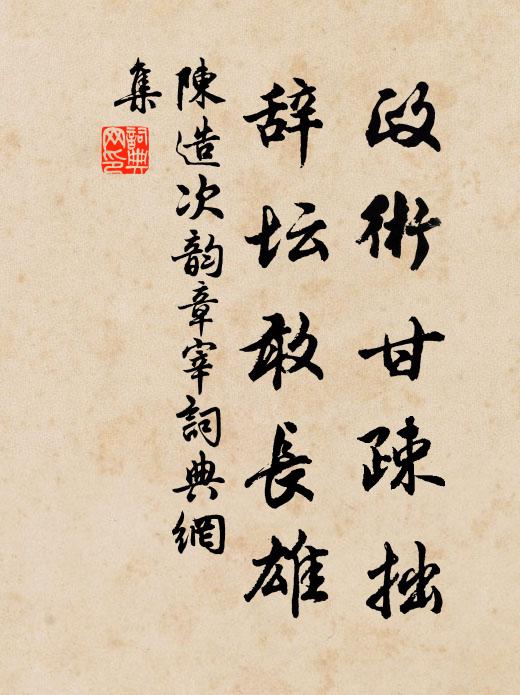 政術甘疎拙
辞坛敢長雄
陳造次韵章宰詞典網
集
詞典
网印